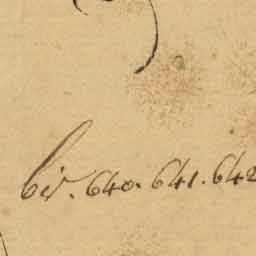 bis. 640. 641. 642